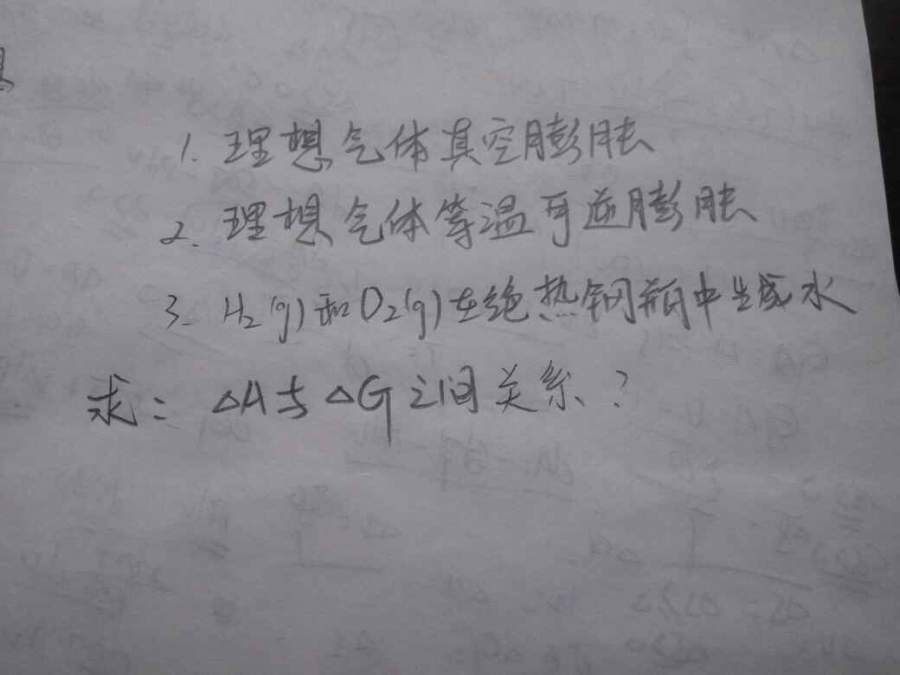 1. 理想气体真空膨胀
2. 理想气体等温可逆膨胀
3. H₂(g)和O₂(g)在绝热钢瓶中生成水
求: △A与△G之间关系?